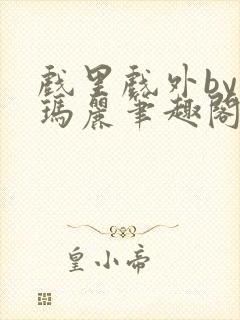 戲里戲外by
瑪麗筆趣閣
皇小帝